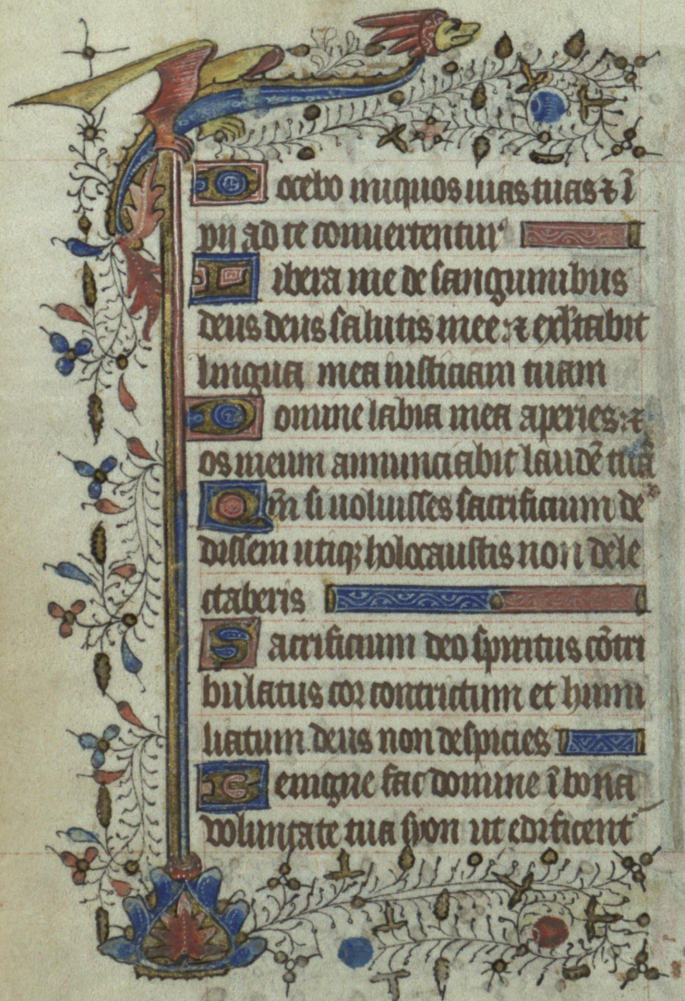 Docebo iniquos uias tuas ⁊ ī
pij ad te conuertentur
Libera me de sanguinibus
deus deus salutis mee: ⁊ exl̄tabit
lingua mea iusticiam tuam
Domine labia mea aperies: ⁊
os meum annunciabit laudē tuā
Qm̄ si uoluisses sacrificium de
dissem utiqꝫ holocaustis non dele
ctaberis
Sacrificium deo spiritus cōtri
bulatus cor contrictum et humi
liatum deus non despicies
Benigne fac domine ī bona
voluntate tua syon ut edificent᷑